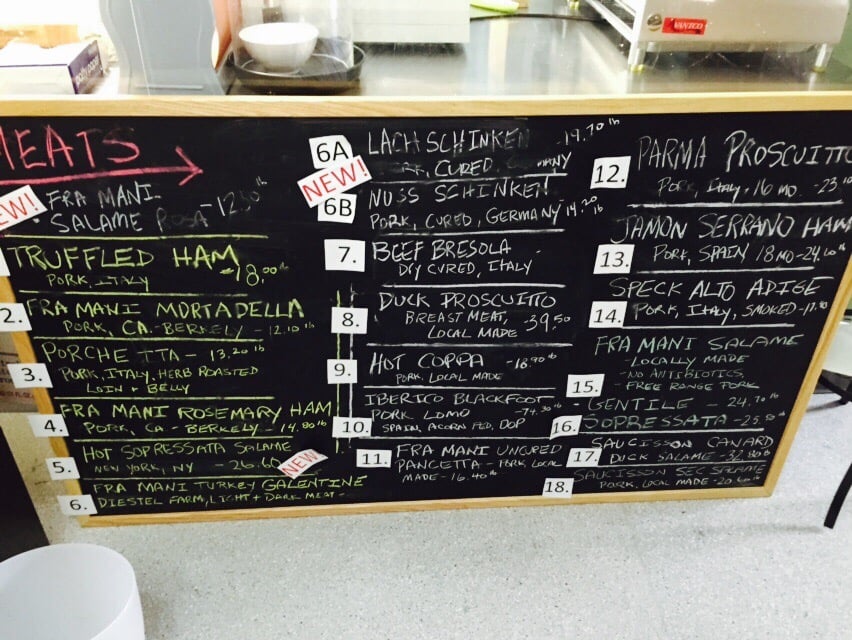 MEATS
NEW!
FRA MANI
SALAME ROSA -12.50 lb
TRUFFLED HAM
-18.00 lb
PORK, ITALY
2.
FRA MANI MORTADELLA
PORK, CA.-BERKELY - 12.10 lb
3.
PORCHETTA - 13.20 lb
PORK, ITALY, HERB ROASTED
LOIN + BELLY
4.
FRA MANI ROSEMARY HAM
PORK, CA - BERKELY - 14.80 lb
5.
HOT SOPRESSATA SALAME
NEW YORK, NY - 26.60
NEW!
6.
FRA MANI TURKEY GALENTINE
DIESTEL FARM, LIGHT + DARK MEAT -
6A
LACHSCHINKEN -19.70 lb
CURED
NEW!
6B
NUSS SCHINKEN
PORK, CURED, GERMANY 14.20 lb
7.
BEEF BRESOLA
DRY CURED, ITALY
8.
DUCK PROSCUITTO
BREAST MEAT, -39.50
LOCAL MADE
9.
HOT COPPA -18.90 lb
PORK, LOCAL MADE
10.
IBERICO BLACKFOOT
PORK LOMO -74.30 lb
SPAIN, ACORN FED, DOP
11.
FRA MANI UNCURED
PANCETTA - PORK, LOCAL
MADE - 16.40 lb
12.
PARMA PROSCUITTO
PORK, ITALY, 16 MO. -23
13.
JAMON SERRANO HAM
PORK, SPAIN 18 MO -24.60 lb
14.
SPECK ALTO ADIGE
PORK, ITALY, SMOKED
15.
FRA MANI SALAME
- LOCALLY MADE
- NO ANTIBIOTICS
- FREE RANGE PORK
GENTILE - 24.70 lb
16.
SOPRESSATA - 25.50 lb
17.
SAUCISSON CANARD
DUCK SALAME - 32.80 lb
18.
SAUCISSON SEC SALAME
PORK, LOCAL MADE - 20.60 lb
AVANTCO